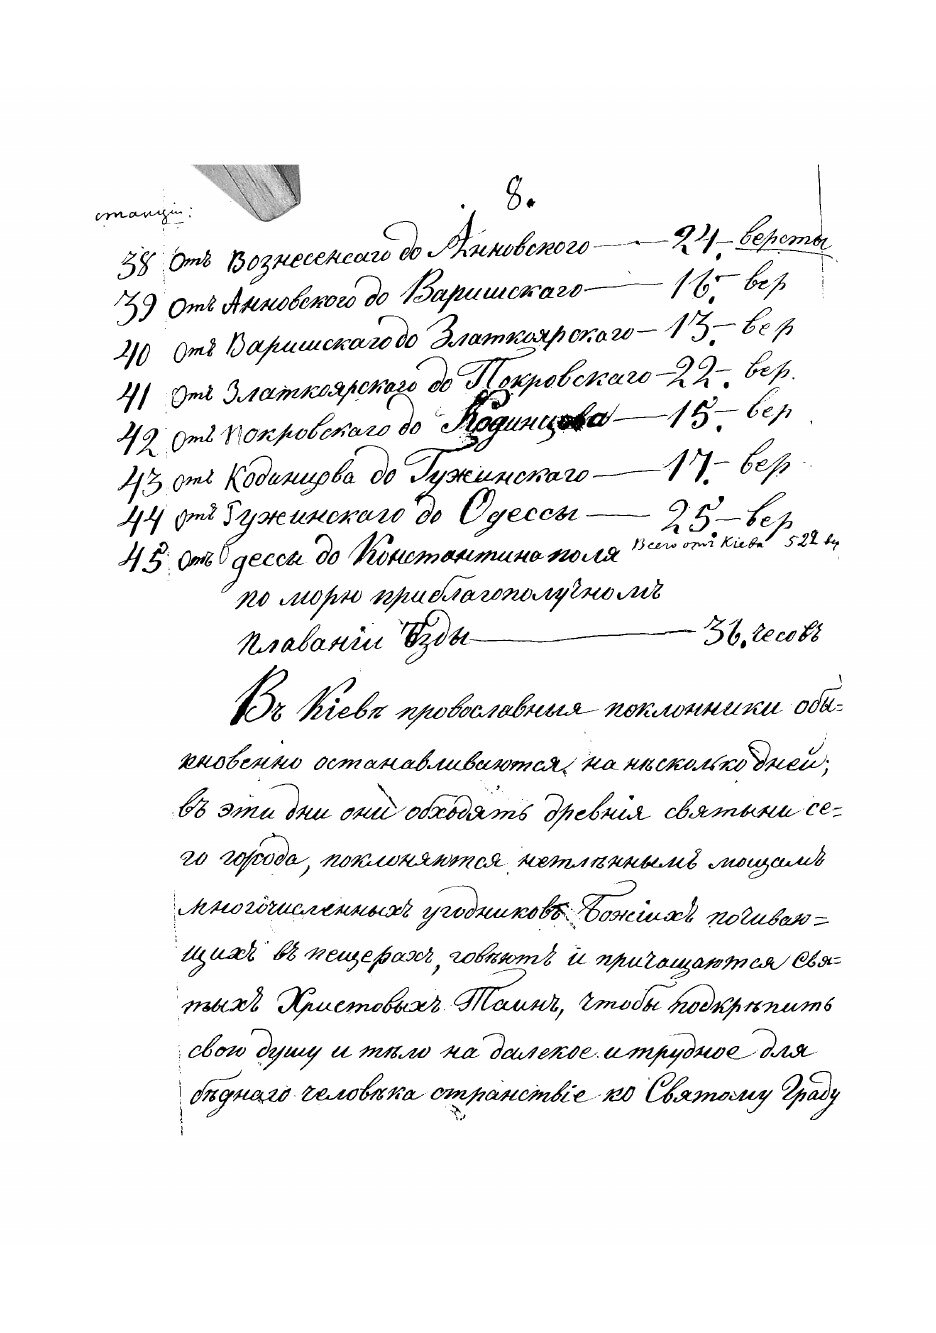 8.
станціи:
38 Отъ Вознесенсаго до Анновского — 24. версты
39 Отъ Анновского до Варишскаго — 16. вер
40 Отъ Варишскаго до Златкоярскаго — 13. вер
41 Отъ Златкоярскаго до Покровскаго — 22. вер.
42 Отъ Покровскаго до Кодинцова — 15. вер
43 отъ Кодинцова до Гужинскаго — 17. вер
44 отъ Гужинскаго до Одессы — 25 — вер
Всего отъ Кіева 522 вр
45 отъ Одессы до Константинаполя
по морю приблагополучномъ
плаваніи Ѣзды — 36. чесовъ
Въ Кіевѣ провославныя поклонники обы=
кновенно останавливаются, на нѣсколько дней;
въ эти дни они обходятъ древнія святыни се=
го города, поклоняются нетлѣннымъ мощамъ
многочисленныхъ угодниковъ Божіихъ почиваю=
щихъ въ пещерахъ, говѣютъ и причащаются Свя=
тыхъ Христовыхъ Таинъ, чтобы подкрѣпить
свою душу и тѣло на далекое и трудное для
бѣднаго человѣка странствіе ко Святому Граду